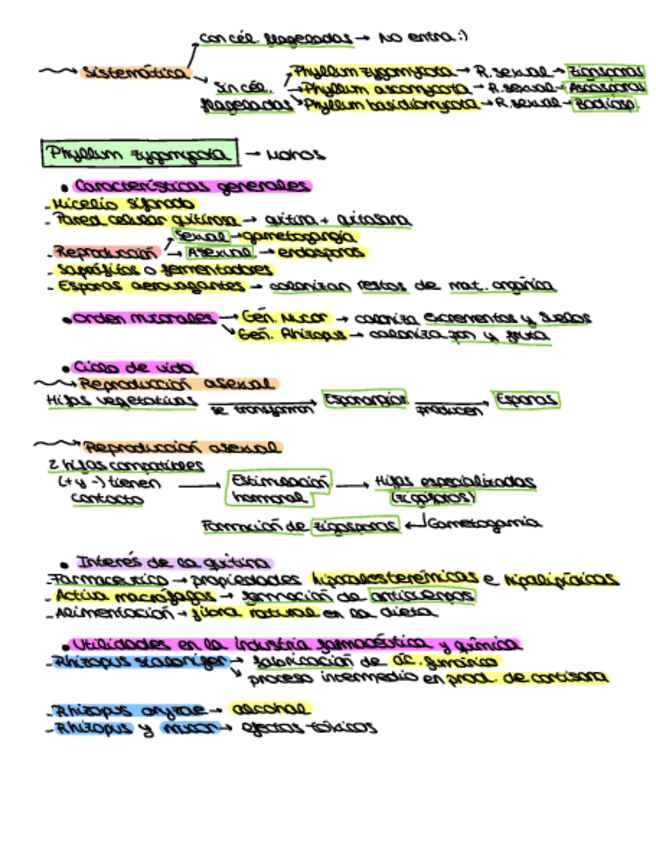 con cél. flageladas → No entra :)
Sistemática
Sin cél. flageladas
Phyllum zygomycota → R. sexual → Zigosporas
Phyllum ascomycota → R. sexual → Ascosporas
Phyllum basidiomycota → R. sexual → Badiosp.
Phyllum zygomycota → Mohos
• Características generales
- Micelio sifonado
- Pared celular quitinosa → quitina + quitosana
Sexual → gametogangia
- Reproducción → Asexual → endosporas
- Saprófitos o fermentadores
- Esporas aerovagantes → colonizan restos de mat. orgánica
• Orden mucorales → Gén. Mucor → coloniza excrementos y suelos
Gén. Rhizopus → coloniza pan y fruta
• Ciclo de vida
Reproducción asexual
Hifas vegetativas se transforman → Esporangios producen → Esporas
Reproducción asexual
2 hifas compatibles
(+ y -) tienen → Estimulación → Hifas especializadas
contacto hormonal (zigóforos)
Formación de zigosporas ← Gametogamia
• Interés de la quitina
- Farmaceutico → propiedades hipocolesterémicas e hipolipídicas
- Activa macrófagos → formación de anticuerpos
- Alimentación → fibra natural en la dieta
• Utilidades en la industria farmacéutica y química
- Rhizopus stolonifer → fabricación de ác. fumárico
proceso intermedio en prod. de cortisona
- Rhizopus oryzae → alcohol
- Rhizopus y mucor → efectos tóxicos